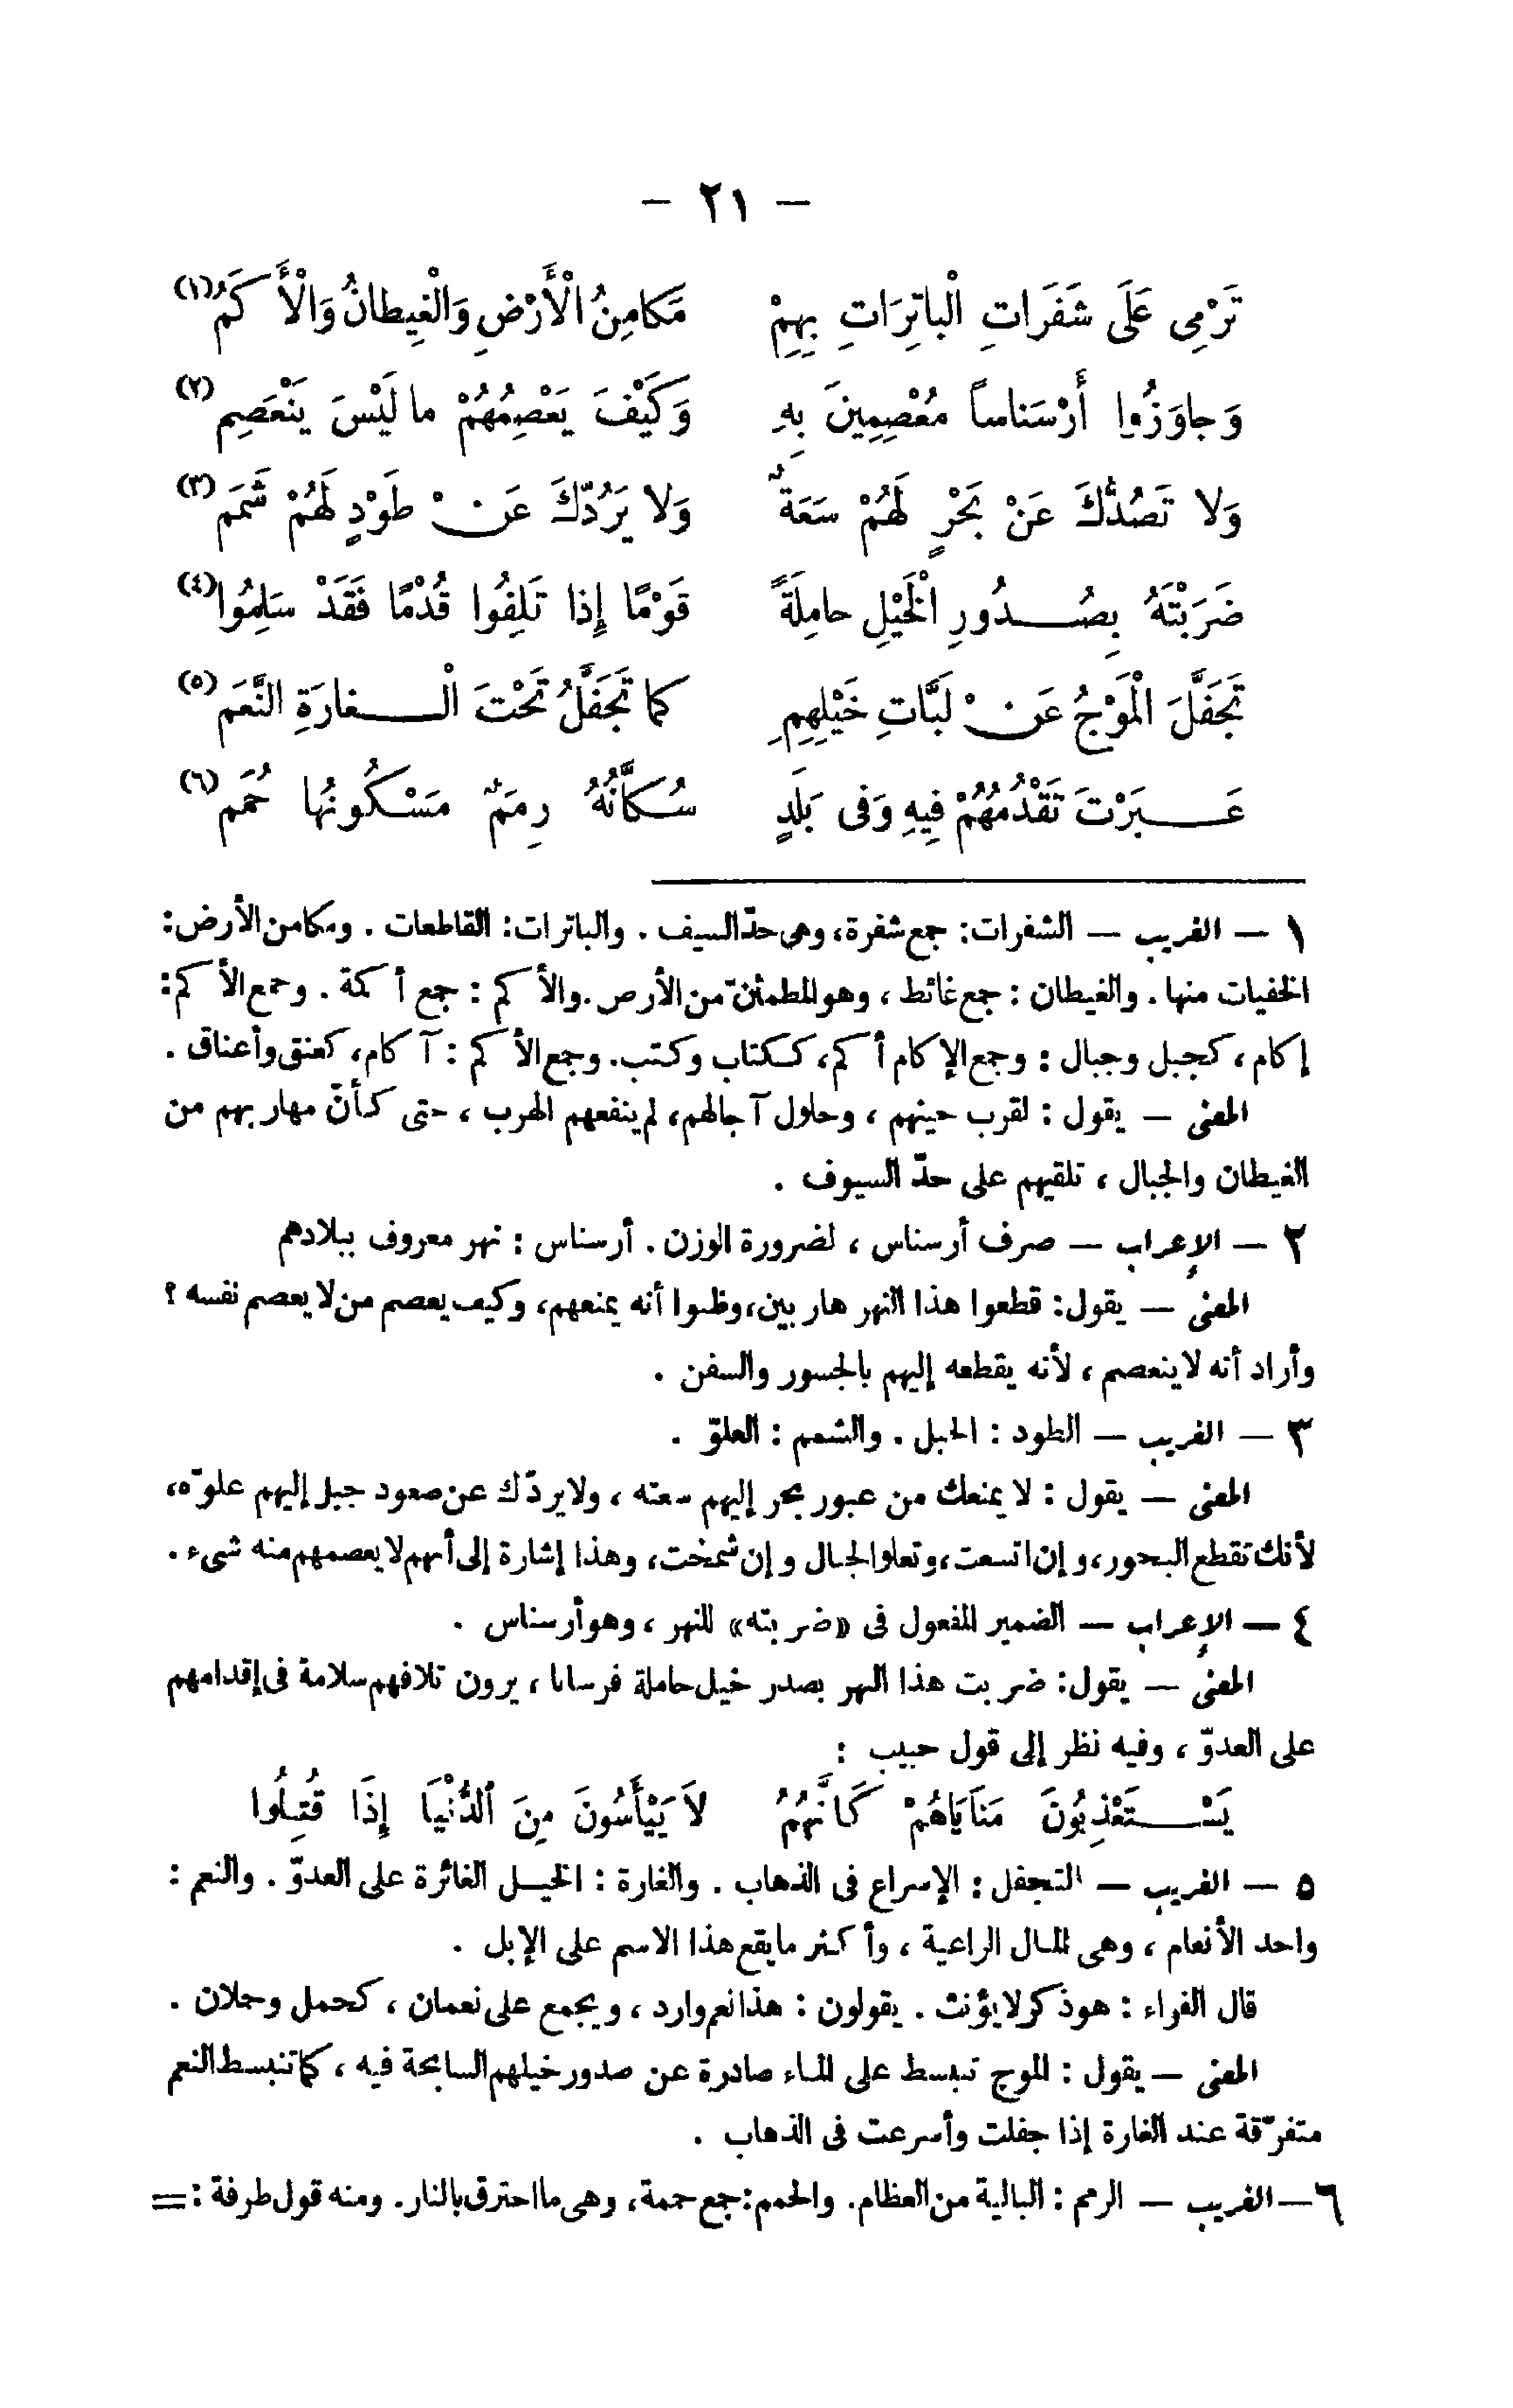 — ٢١ —
تَرْمِى عَلَى شَفَرَاتِ الْباتِرَاتِ بِهِمْ مَكامِنُ الْأَرْضِ وَالْغِيطانُ وَالْأَكَمُ (١)
وَجاوَزُوا أَرْسَناساً مُعْصِمِينَ بِهِ وَكَيْفَ يَعْصِمُهُمْ ما لَيْسَ يَنْعَصِم (٢)
وَلا تَصُدُّكَ عَنْ بَحْرٍ لَهُمْ سَعَةٌ وَلا يَرُدّكَ عَنْ طَوْدٍ لَهُمْ شَمَم (٣)
ضَرَبْتَهُ بِصُدُورِ الْخَيْلِ حامِلَةً قَوْمًا إِذا تَلِفُوا قُدْمًا فَقَدْ سَلِمُوا (٤)
تَجَفَّلَ الْمَوْجُ عَنْ لَبَّاتِ خَيْلِهِمِ كما تَجَفَّلُ تَحْتَ الْغارَةِ النَّعَم (٥)
عَبَرْتَ تَقْدُمُهُمْ فِيهِ وَفى بَلَدٍ سُكَّانُهُ رِمَمٌ مَسْكُونُها حُمَم (٦)
١ — الغريب — الشفرات: جمع شفرة، وهى حدّ السيف . والباترات: القاطعات . ومكامن الأرض:
الخفيات منها . والغيطان : جمع غائط ، وهو المطمئنّ من الأرض . والأكم : جمع أكمة . وجمع الأكم:
إكام ، كجبل وجبال : وجمع الإكام أكم، ككتاب وكتب. وجمع الأكم : آكام، كعنق وأعناق .
المعنى — يقول : لقرب حينهم ، وحلول آجالهم، لم ينفعهم الهرب ، حتى كأنّ مهاربهم من
الغيطان والجبال ، تلقيهم على حدّ السيوف .
٢ — الإعراب — صرف أرسناس ، لضرورة الوزن . أرسناس : نهر معروف ببلادهم
المعنى — يقول: قطعوا هذا النهر هاربين، وظنوا أنه يمنعهم، وكيف يعصم من لا يعصم نفسه ؟
وأراد أنه لا ينعصم ، لأنه يقطعه إليهم بالجسور والسفن .
٣ — الغريب — الطود : الجبل . والشمم : العلوّ .
المعنى — يقول : لا يمنعك من عبور بحر إليهم سعته ، ولا يردّك عن صعود جبل إليهم علوّه،
لأنك تقطع البحور، وإن اتسعت، وتعلو الجبال وإن شمخت، وهذا إشارة إلى أنهم لا يعصمهم منه شىء .
٤ — الإعراب — الضمير المفعول فى «ضربته» للنهر ، وهو أرسناس .
المعنى — يقول: ضربت هذا النهر بصدر خيل حاملة فرسانا ، يرون تلافهم سلامة فى إقدامهم
على العدوّ ، وفيه نظر إلى قول حبيب :
يَسْتَعْذِبُونَ مَنَايَاهُمْ كَأَنَّهُمُ لَا يَيْأَسُونَ مِنَ الدُّنْيَا إِذَا قُتِلُوا
٥ — الغريب — التجفل : الإسراع فى الذهاب . والغارة : الخيل الغائرة على العدوّ . والنعم :
واحد الأنعام ، وهى المال الراعية ، وأكثر ما يقع هذا الاسم على الإبل .
قال الفراء : هو ذكر لا يؤنث . يقولون : هذا نعم وارد ، ويجمع على نعمان ، كحمل وحملان .
المعنى — يقول : الموج تنبسط على الماء صادرة عن صدور خيلهم السابحة فيه ، كما تنبسط النعم
متفرّقة عند الغارة إذا جفلت وأسرعت فى الذهاب .
٦ — الغريب — الرمم : البالية من العظام. والحمم: جمع حممة، وهى ما احترق بالنار. ومنه قول طرفة : =